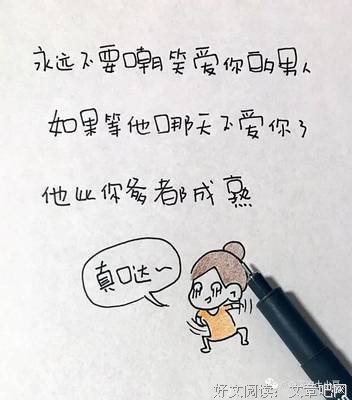 永远不要嘲笑爱你的男人
如果等他哪天不爱你了
他比你爹都成熟
真哒~
好文阅读:文章吧网